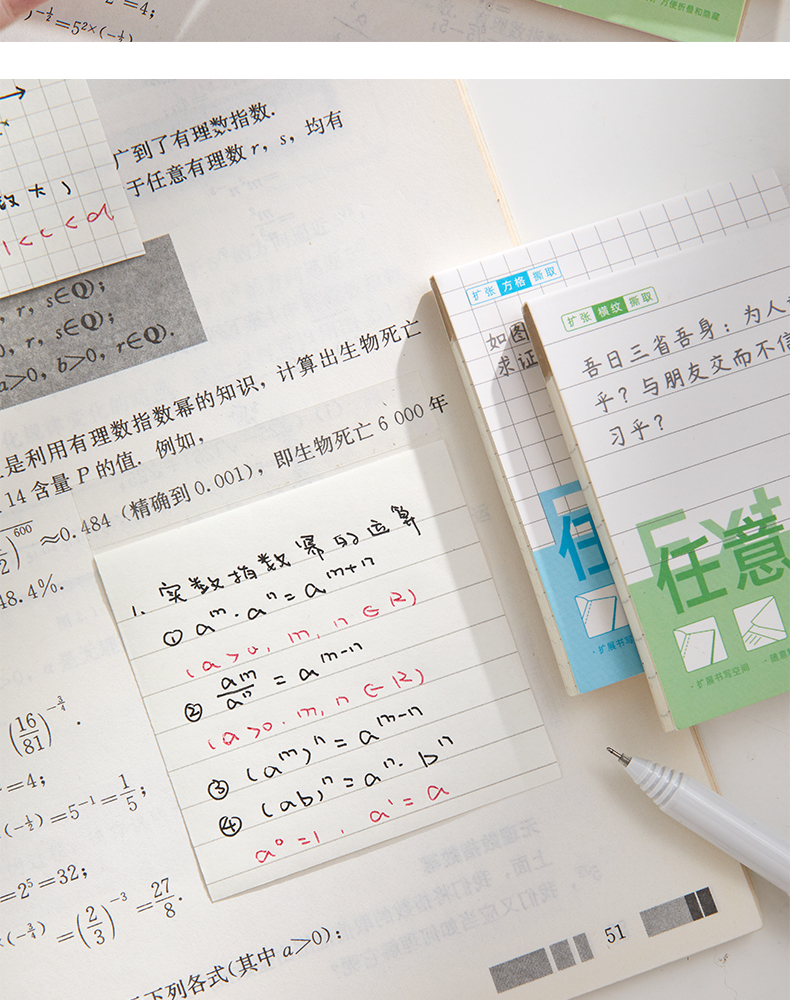 =4;
=5^{2×(-1/2)}
方便折叠和隐藏
广到了有理数指数.
于任意有理数 r, s, 均有
数大)
1<c<a
, r, s∈Q);
0, r, s∈Q);
a>0, b>0, r∈Q).
是利用有理数指数幂的知识, 计算出生物死亡
14 含量 P 的值. 例如,
600
≈0.484 (精确到 0.001), 即生物死亡 6 000 年
48.4%.
1. 实数指数幂的运算
① a^m · a^n = a^{m+n}
(a>0, m, n∈R)
② a^m/a^n = a^{m-n}
(a>0. m, n∈R)
③ (a^m)^n = a^{m-n}
④ (ab)^n = a^n · b^n
a^0=1, a^1=a
(16/81)^{-3/4}.
=4;
(-1/2)=5^{-1}=1/5;
=2^5=32;
×(-3/4)=(2/3)^{-3}=27/8.
下列各式(其中 a>0):
51
扩张 方格 撕取
如图
求证
任
扩展书写
扩张 横纹 撕取
吾日三省吾身:为人
乎?与朋友交而不信
习乎?
Ext
任意
·扩展书写空间
·随意